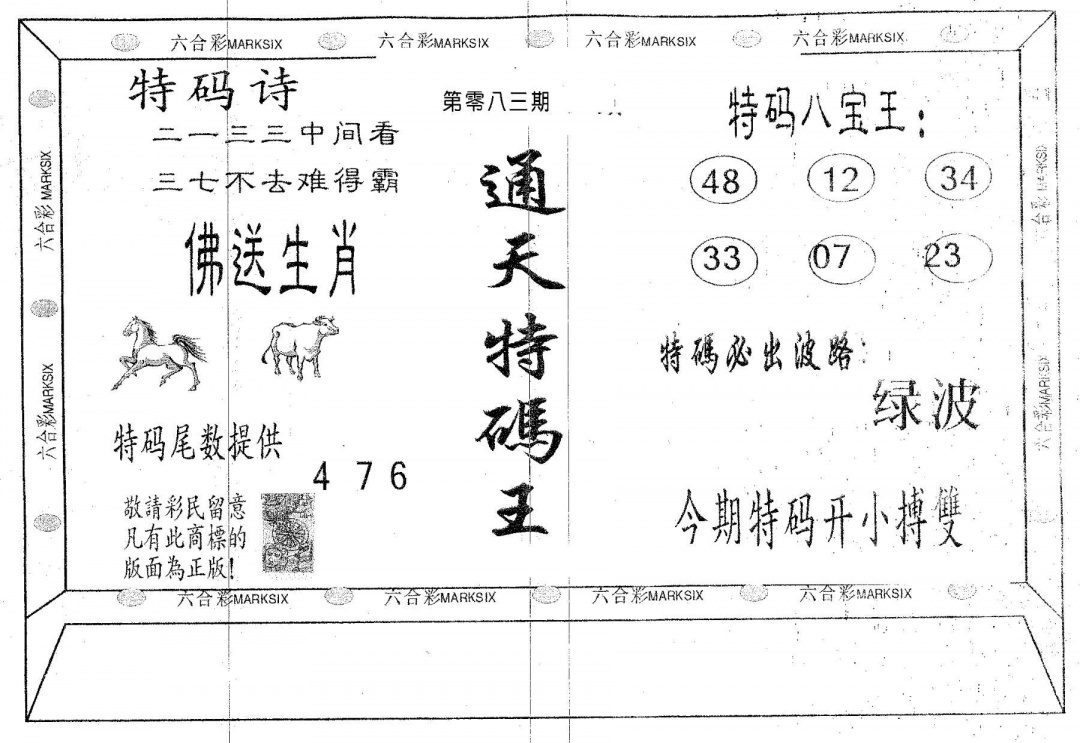 六合彩MARKSIX 六合彩MARKSIX 六合彩MARKSIX 六合彩MARKSIX
特码诗
二一三三中间看
三七不去难得霸
佛送生肖
特码尾数提供
4 7 6
敬請彩民留意
凡有此商標的
版面為正版!
第零八三期
通天特碼王
特码八宝王:
48 12 34
33 07 23
特碼必出波路:
绿波
今期特码开小搏雙
六合彩 MARKSIX
六合彩MARKSIX
六合彩 MARKSIX
六合彩MARKSIX
六合彩MARKSIX 六合彩MARKSIX 六合彩MARKSIX 六合彩MARKSIX